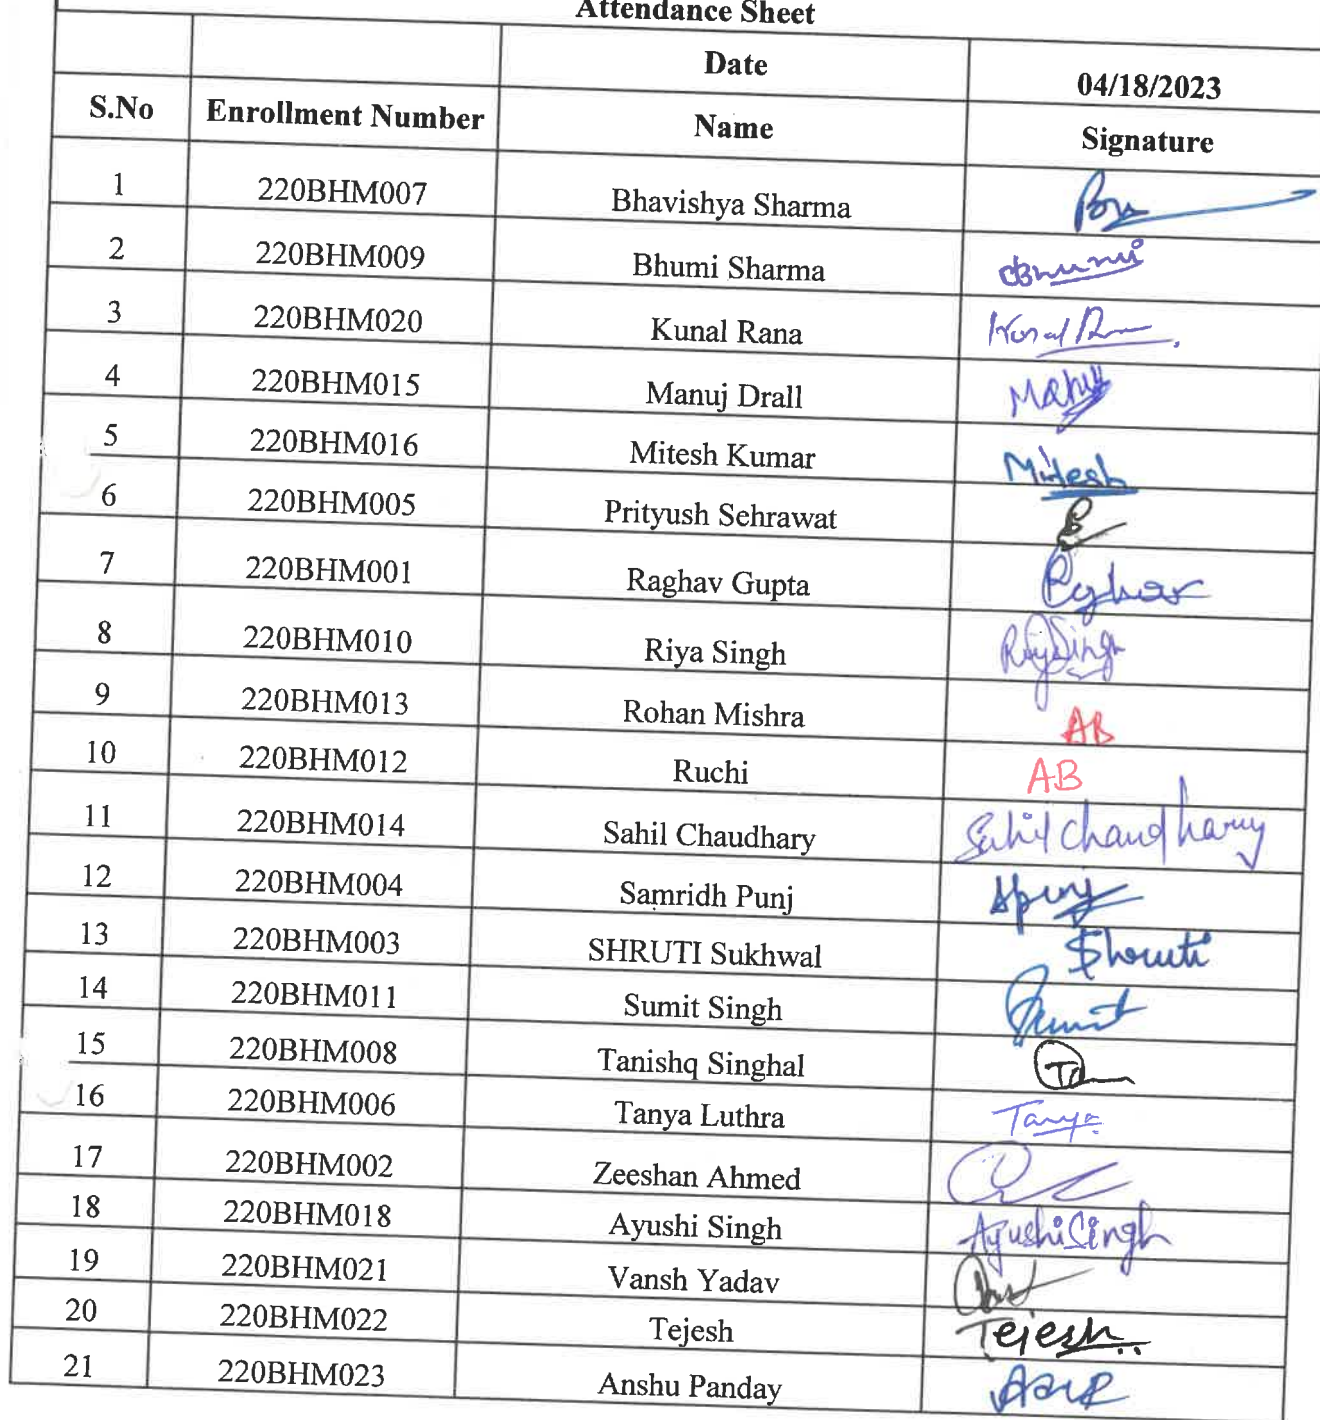 Attendance Sheet
Date 04/18/2023
S.No Enrollment Number Name Signature
1 220BHM007 Bhavishya Sharma
2 220BHM009 Bhumi Sharma Bhumi
3 220BHM020 Kunal Rana Kunal
4 220BHM015 Manuj Drall
5 220BHM016 Mitesh Kumar Mitesh
6 220BHM005 Prityush Sehrawat
7 220BHM001 Raghav Gupta Raghav
8 220BHM010 Riya Singh Riya Singh
9 220BHM013 Rohan Mishra AB
10 220BHM012 Ruchi AB
11 220BHM014 Sahil Chaudhary Sahil Chaudhary
12 220BHM004 Samridh Punj Spunj
13 220BHM003 SHRUTI Sukhwal Shruti
14 220BHM011 Sumit Singh Sumit
15 220BHM008 Tanishq Singhal
16 220BHM006 Tanya Luthra Tanya
17 220BHM002 Zeeshan Ahmed
18 220BHM018 Ayushi Singh Ayushi Singh
19 220BHM021 Vansh Yadav
20 220BHM022 Tejesh Tejesh
21 220BHM023 Anshu Panday